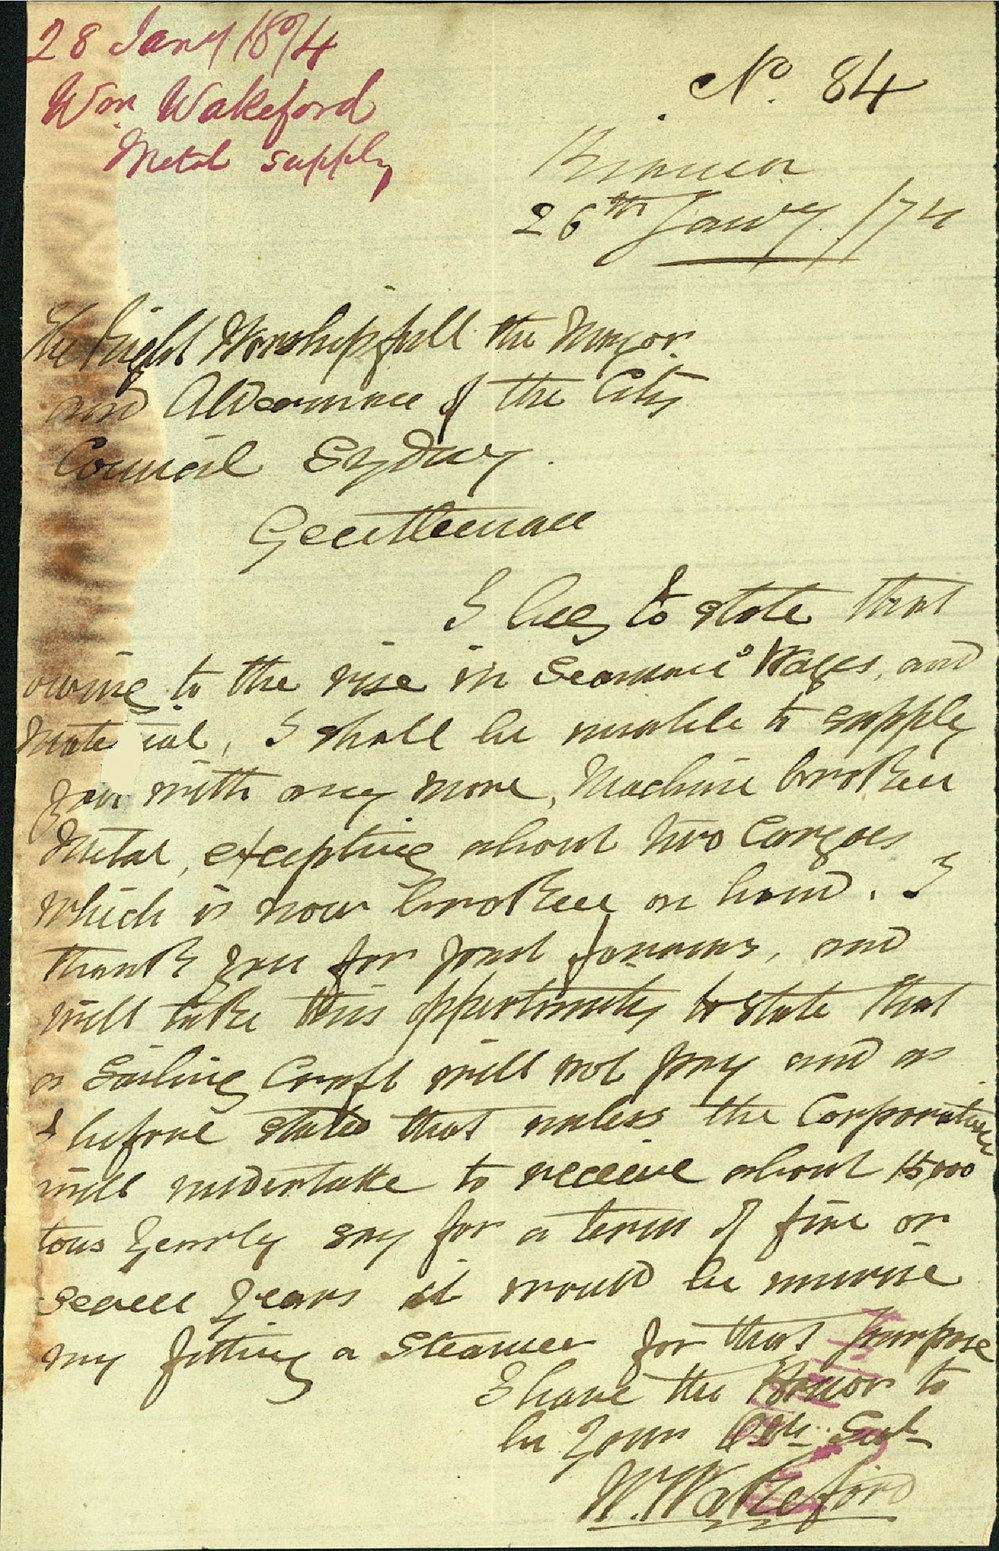 28 Jany 1874
Wm Wakeford
Metal supply
No. 84
Kiama
26th Jany /74
The Right Worshipfull the Mayor
and Aldermen of the City
Council Sydney.
Gentlemen
I beg to state that
owing to the rise in Seamens' Wages, and
Material, I shall be unable to supply
you with any more, Machine broken
Metal, excepting about two Cargoes
which is now broken on hand. I
thank you for past favours, and
will take this oppertunity to state that
a Sailing Craft will not pay and as
I before stated that unless the Corporation
will undertake to receive about 15,000
tons yearly say for a term of five or
seven years it would be unwise
my fitting a Steamer for that purpose
I have the Honor to
be Your Obt Sert
W. Wakeford